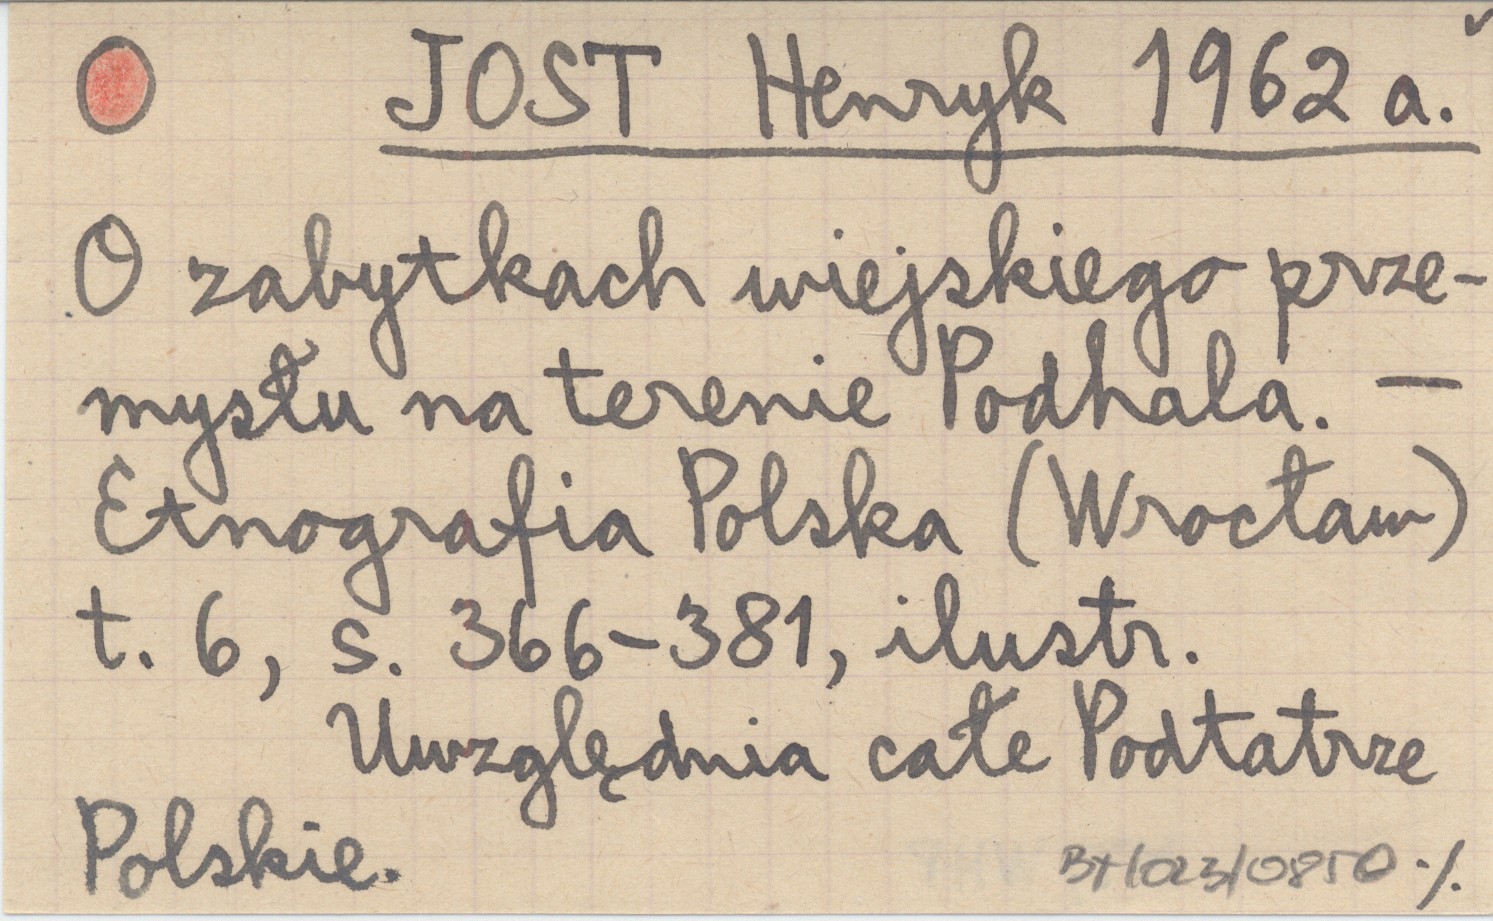 JOST Henryk 1962 a.
O zabytkach wiejskiego prze-
mysłu na terenie Podhala. —
Etnografia Polska (Wrocław)
t. 6, s. 366-381, ilustr.
Uwzględnia całe Podtatrze
Polskie.
BT/023/0850 ./.